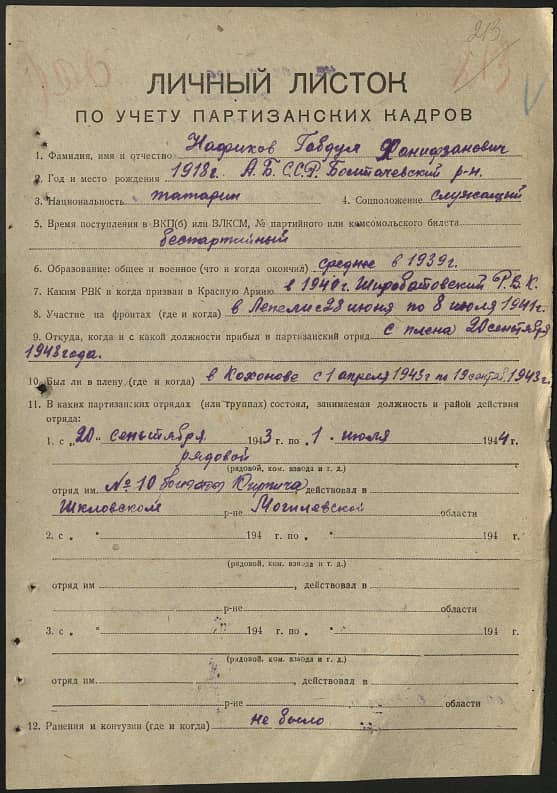 213
113
ЛИЧНЫЙ ЛИСТОК
ПО УЧЕТУ ПАРТИЗАНСКИХ КАДРОВ
1. Фамилия, имя и отчество Нафиков Габдул Ханифзанович
2. Год и место рождения 1918г. А.Б.С.С.Р. Болтачевский р-н.
3. Национальность татарин 4. Соцположение служащий
5. Время поступления в ВКП(б) или ВЛКСМ, № партийного или комсомольского билета
беспартийный
6. Образование: общее и военное (что и когда окончил) среднее в 1939г.
7. Каким РВК и когда призван в Красную Армию в 1940г. Р.В.К.
8. Участие на фронтах (где и когда) в Лепели с 28 июня по 8 июля 1941г.
9. Откуда, когда и с какой должности прибыл в партизанский отряд с плена 20 сентября
1943 года.
10. Был ли в плену (где и когда) в Коханове с 1 апреля 1943г по 19 сентяб. 1943г.
11. В каких партизанских отрядах (или группах) состоял, занимаемая должность и район действия
отряда:
1. с „20" сентября 1943 г. по „1" июля 1944 г.
рядовой
(рядовой, ком. взвода и т. д.)
отряд им. №10 Кирпича действовал в
Шкловском р-не Могилевской области
2. с „ " 194 г. по „ " 194 г.
(рядовой, ком. взвода и т. д.)
отряд им , действовал в
р-не области
3. с „ " 194 г. по „ " 194 г.
(рядовой, ком. взвода и т. д.)
отряд им. , действовал в
р-не области
12. Ранения и контузии (где и когда) не было